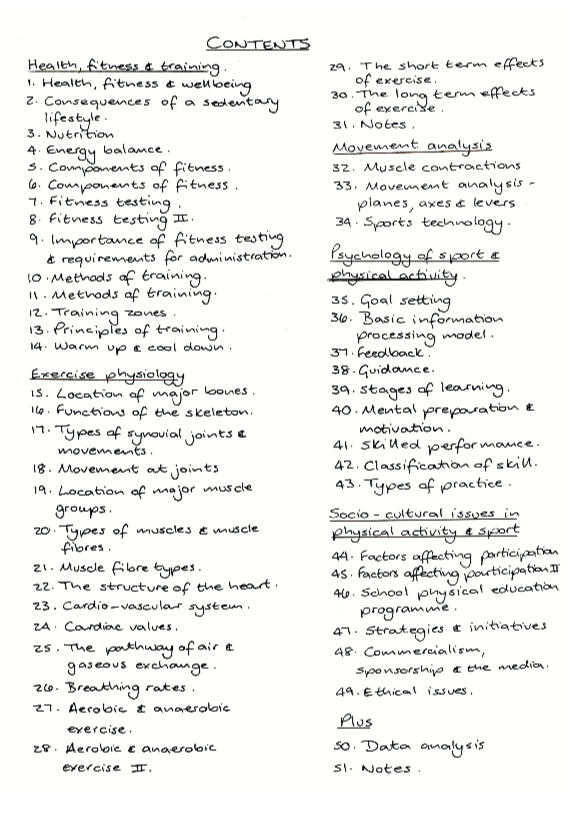 CONTENTS
Health, fitness & training.
1. Health, fitness & wellbeing
2. Consequences of a sedentary
lifestyle.
3. Nutrition
4. Energy balance.
5. Components of fitness.
6. Components of fitness.
7. Fitness testing.
8. Fitness testing II.
9. Importance of fitness testing
& requirements for administration.
10. Methods of training.
11. Methods of training.
12. Training zones.
13. Principles of training.
14. Warm up & cool down.
Exercise physiology
15. Location of major bones.
16. Functions of the skeleton.
17. Types of synovial joints &
movements.
18. Movement at joints
19. Location of major muscle
groups.
20. Types of muscles & muscle
fibres.
21. Muscle fibre types.
22. The structure of the heart.
23. Cardio-vascular system.
24. Cardiac values.
25. The pathway of air &
gaseous exchange.
26. Breathing rates.
27. Aerobic & anaerobic
exercise.
28. Aerobic & anaerobic
exercise II.
29. The short term effects
of exercise.
30. The long term effects
of exercise.
31. Notes.
Movement analysis
32. Muscle contractions
33. Movement analysis -
planes, axes & levers
34. Sports technology.
Psychology of sport &
physical activity.
35. Goal setting
36. Basic information
processing model.
37. Feedback.
38. Guidance.
39. Stages of learning.
40. Mental preparation &
motivation.
41. Skilled performance.
42. Classification of skill.
43. Types of practice.
Socio-cultural issues in
physical activity & sport
44. Factors affecting participation
45. Factors affecting participation II
46. School physical education
programme.
47. Strategies & initiatives
48. Commercialism,
sponsorship & the media.
49. Ethical issues.
Plus
50. Data analysis
51. Notes.